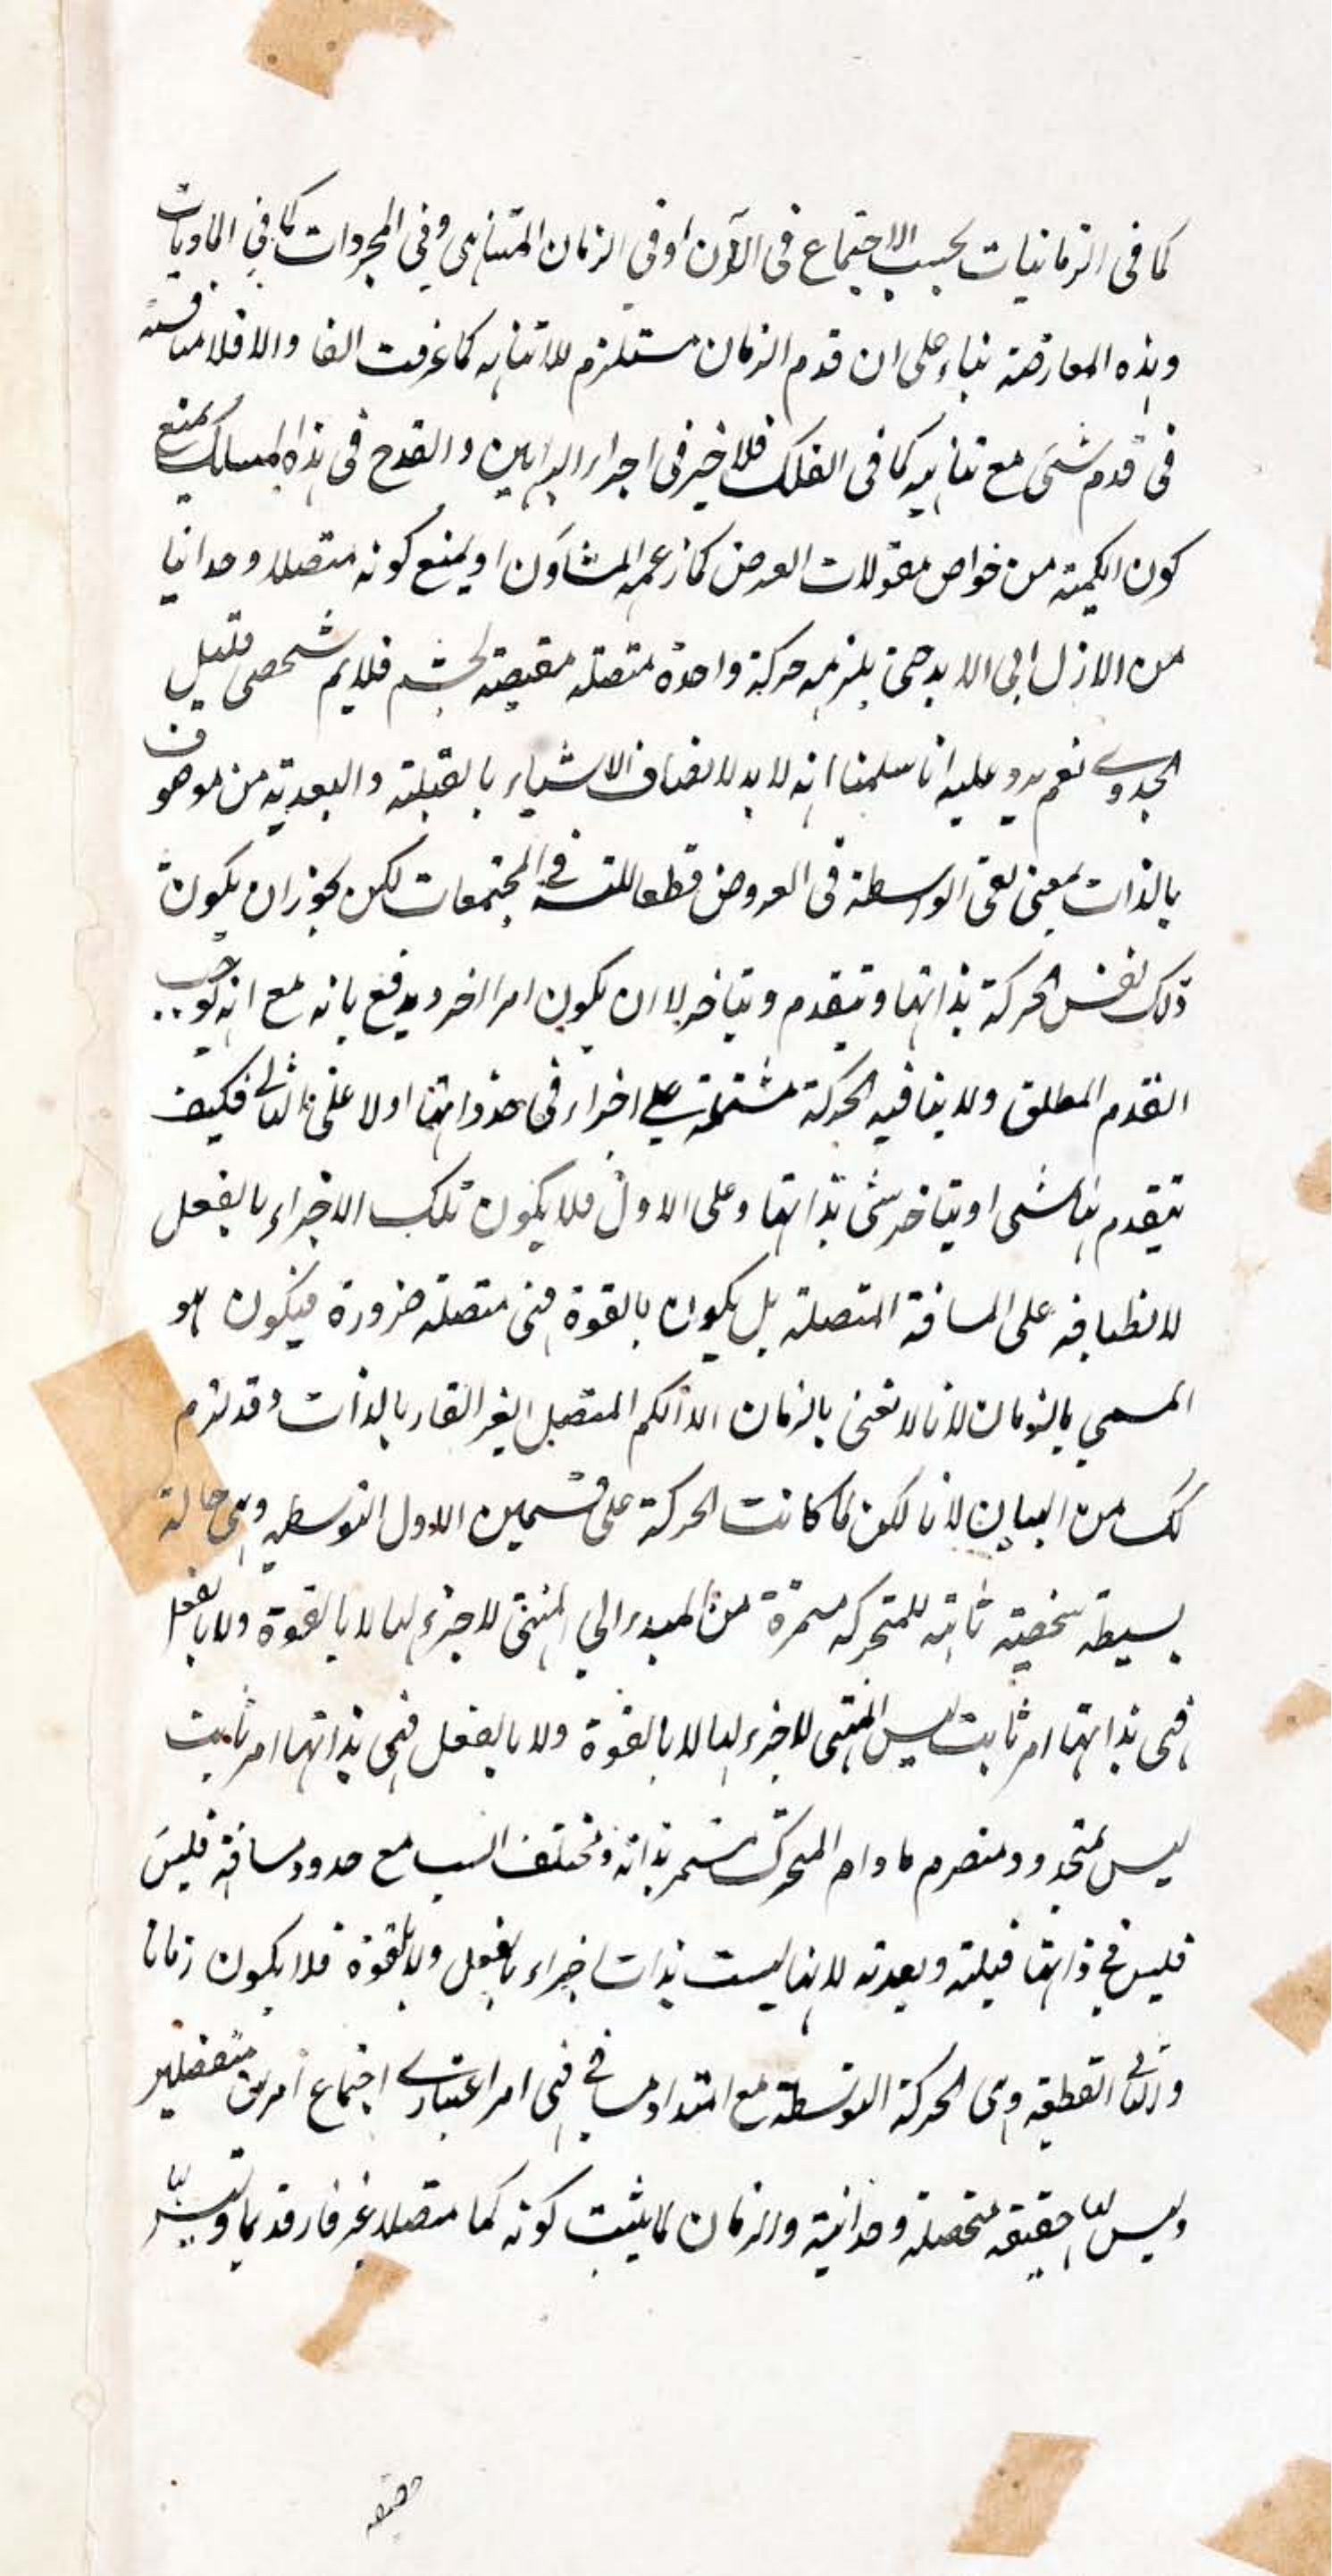 كما فى الزمانيات بحسب الاجتماع فى الآن او فى الزمان المتناهى وفى المجردات كما فى الماديات
وهذه المعارضة بناء على ان قدم الزمان مستلزم للاتناهيه كما عرفت انفا والا فلا منافسة
فى قدم شئ مع تناهيه كما فى الفلك فلا خير فى اجراء البراهين والقدح فى هذا المسالك بمنع
كون الكمية من خواص مقولات العرض كما زعمه المشاؤن او بمنع كونه متصلا وحدانيا
من الازل الى الابد حتى يلزمه حركة واحدة متصلة فلايم شخصى قليل
الجدوى نعم يرد عليه انا سلمنا انه لا بد لاتصاف الاشياء بالقبلية والبعدية من موصوف
بالذات بمعنى نفى الواسطة فى العروض قطعا للتسـ فى المجتمعات لكن يجوز ان يكون
ذلك نفس الحركة بذاتها وتتقدم وتتاخر لا ان يكون امرا اخر ويدفع بانه مع انه يوجب
التقدم المطلق ولا ينافيه الحركة مشتملة على اجزاء فى حد ذواتها اولا على الثانى فكيف
تتقدم بها شئ او يتاخر شئ بذاتها وعلى الاول فلا يكون تلك الاجزاء بالفعل
لانطباقه على المسافة المتصلة بل يكون بالقوة فهى متصلة ضرورة فيكون هو
المسمى بالزمان لانا لا نعنى بالزمان الا الكم المتصل الغير القار بالذات وقد لزم
لك من البيان لانا لكن لما كانت الحركة على قسمين الاول التوسطيه وهى حالة
بسيطة شخصية ثابته للمتحركه مستمرة من المبدء الى المنتهى لا جزء لها لا بالقوة ولا بالفعل
فهى بذاتها امر ثابت ليس المنتهى لا جزء لها لا بالقوة ولا بالفعل فهى بذاتها امر ثابت
ليس بمتجدد ومنصرم ما دام المتحرك مستمر بذاته ومختلف النسب مع حدود مسافة فليس
فليس فى ذاتها قبلية وبعدية لانها ليست بذات اجزاء بالفعل ولا بالقوة فلا يكون زمانا
والثانى القطعية وهى الحركة التوسطة مع امتداد مسافى فهى امر اعتبارى اجتماع امرين منفصلين
وليس لها حقيقة متحصلة وحدانية والزمان لما يثبت كونه كما متصلا غير قار قديما
حقيقه